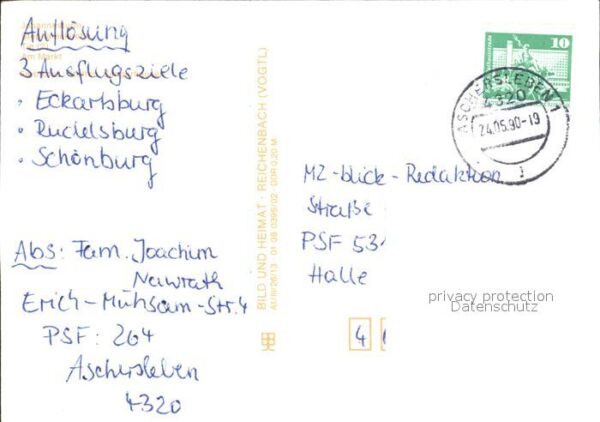 Auflösung
Am Markt
3 Ausflugsziele
• Eckartsburg
• Rudelsburg
• Schönburg
Abs: Fam. Joachim
Nawrath
Erich-Mühsam-Str. 4
PSF: 264
Aschersleben
4320
BILD UND HEIMAT · REICHENBACH (VOGTL)
A1/III/26/13 01 08 0396/02 DDR 0,20 M
10
ASCHERSLEBEN 1
4320
24.05.90-19
MZ-blick-Redaktion
Straße
PSF 531
Halle
privacy protection
Datenschutz
4